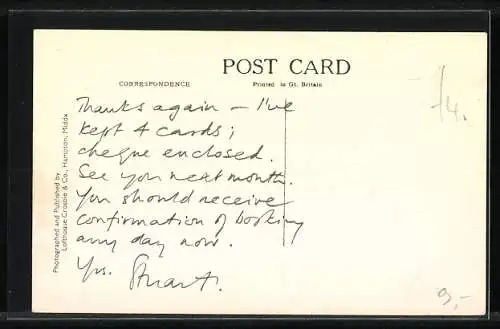 POST CARD
CORRESPONDENCE
Printed in Gt. Britain
Thanks again – I've
kept 4 cards;
cheque enclosed.
See you next month.
You should receive
confirmation of booking
any day now.
Yrs. Stuart.
Photographed and Published by
Lofthouse Crosbie & Co., Hampton, Middx.
/4.
9,-